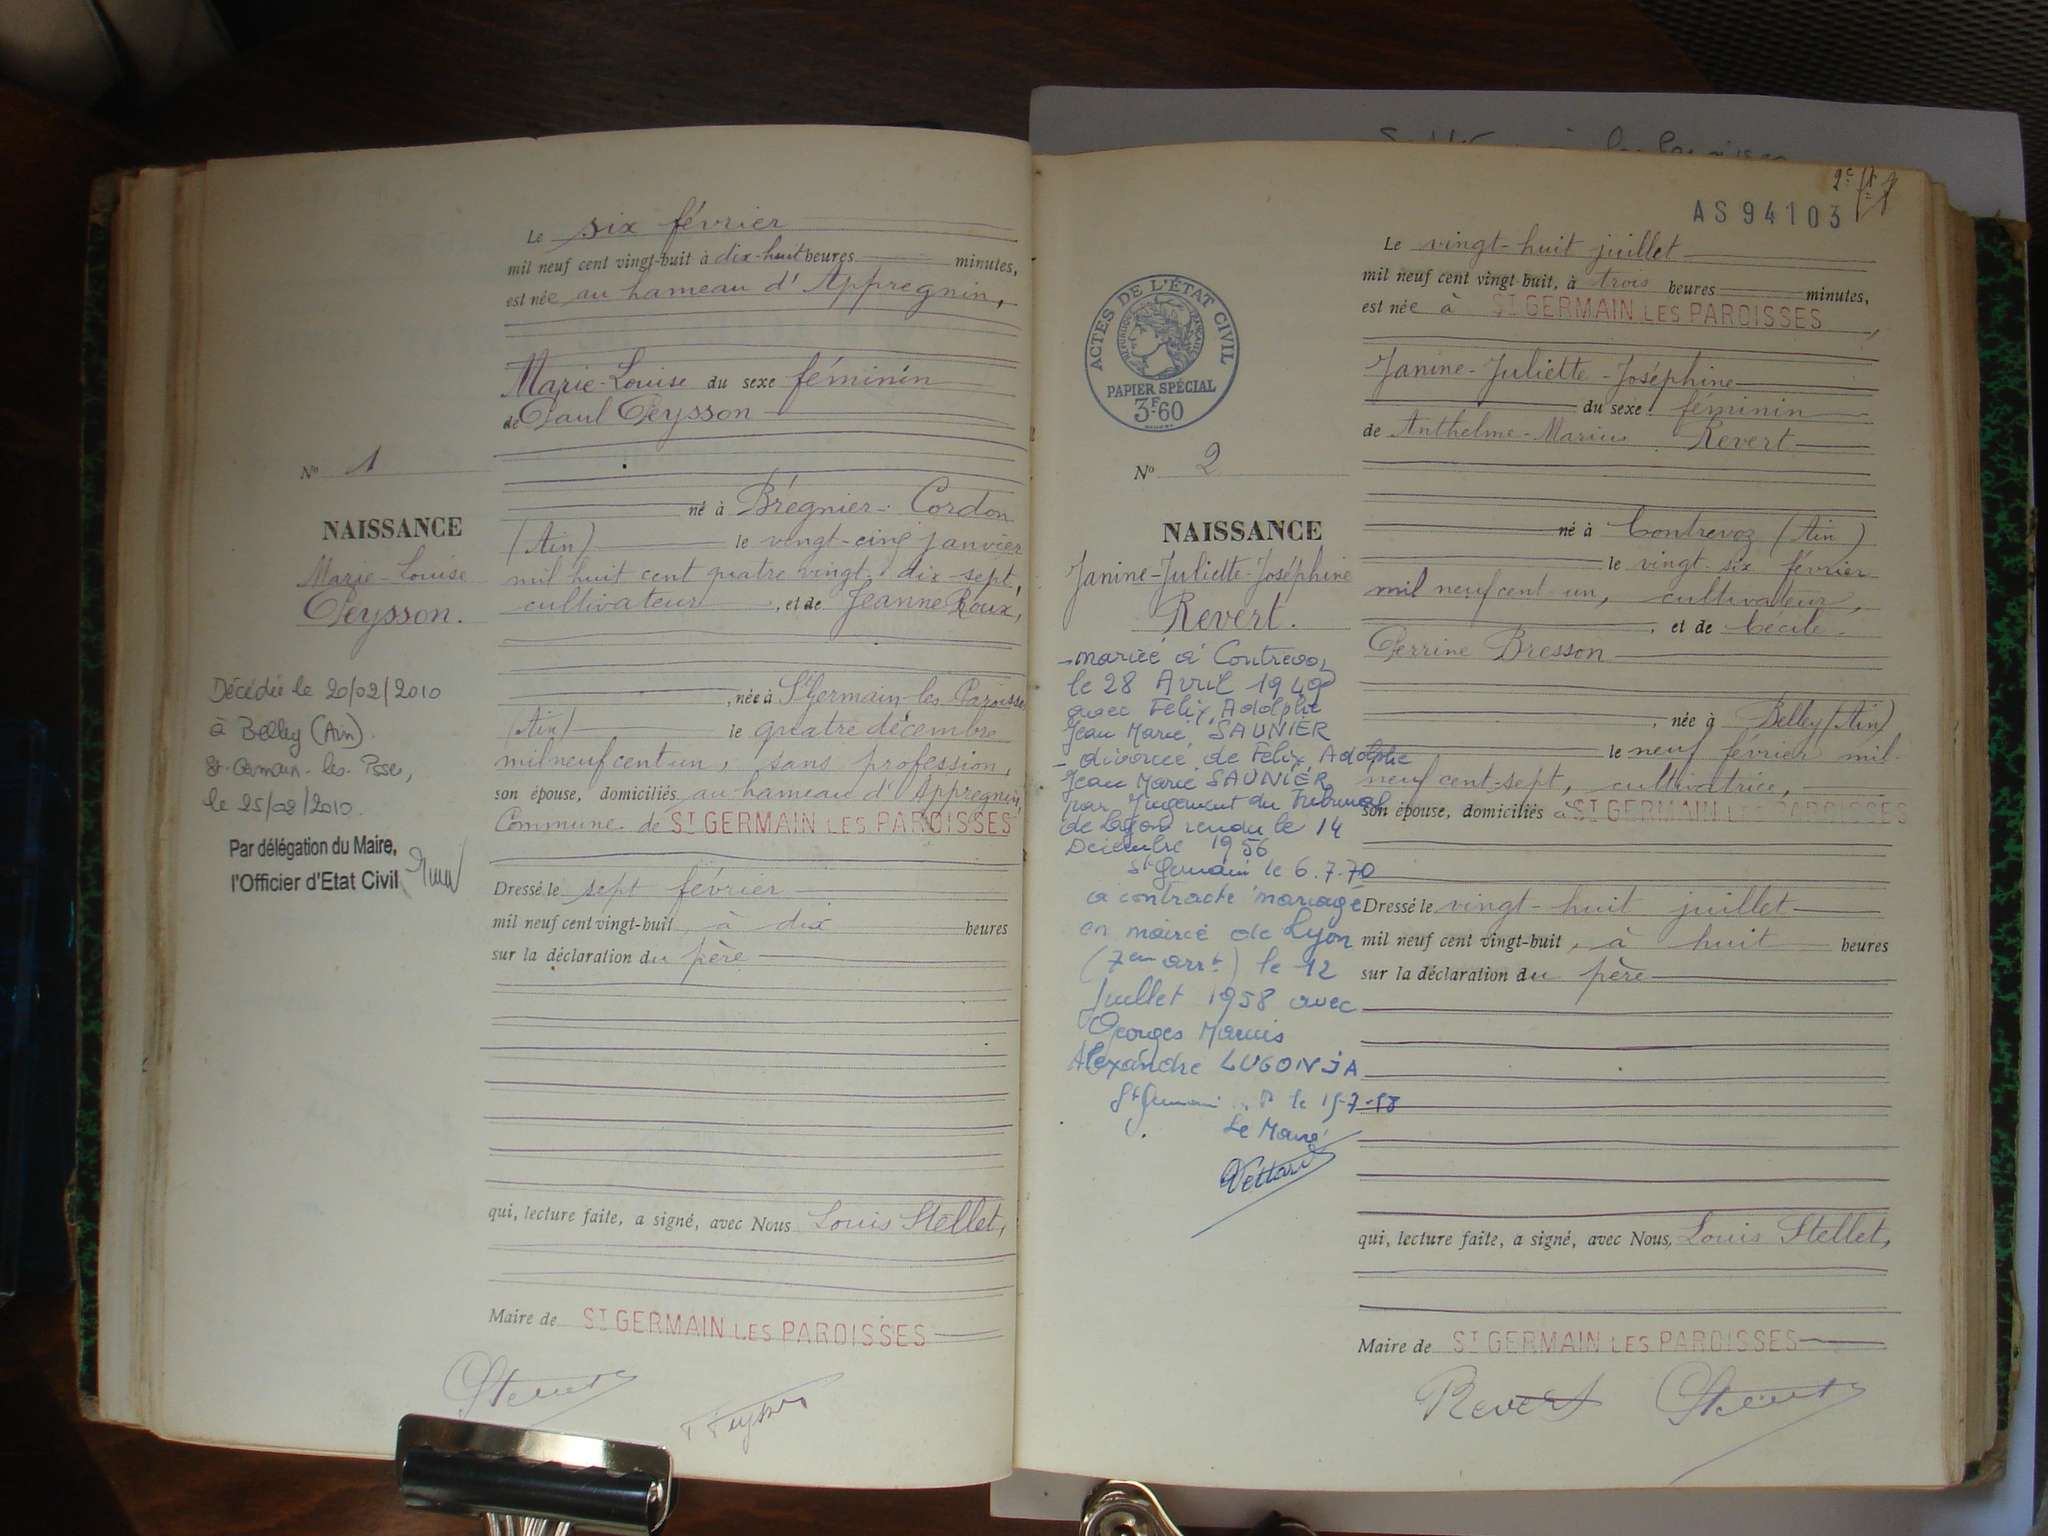 Le six février
mil neuf cent vingt-huit à dix-huit heures minutes,
est née au hameau d'Appregnin,
Marie-Louise du sexe féminin
de Paul Peysson
N° 1
né à Brégnier-Cordon
NAISSANCE
(Ain) le vingt-cinq janvier
Marie-Louise
mil huit cent quatre vingt-dix-sept,
Peysson.
cultivateur, et de Jeanne Roux,
Décédée le 20/02/2010
à Belley (Ain).
St-Germain-les-Psses,
le 25/02/2010.
Par délégation du Maire,
l'Officier d'Etat Civil
, née à St Germain-les-Paroisses
(Ain) le quatre décembre
mil neuf cent un, sans profession,
son épouse, domiciliés au hameau d'Appregnin,
Commune de ST GERMAIN LES PAROISSES
Dressé le sept février
mil neuf cent vingt-huit, à dix heures
sur la déclaration du père
qui, lecture faite, a signé, avec Nous Louis Stellet,
Maire de ST GERMAIN LES PAROISSES
2e
AS 94103
Le vingt-huit juillet
mil neuf cent vingt-huit, à trois heures minutes,
est née à ST GERMAIN LES PAROISSES,
ACTES DE L'ÉTAT CIVIL
RÉPUBLIQUE FRANÇAISE
PAPIER SPÉCIAL
3F.60
Janine-Juliette-Joséphine
du sexe féminin
de Anthelme-Marius Revert
N° 2
né à Contrevoz (Ain)
NAISSANCE
le vingt-six février
Janine-Juliette-Joséphine
mil neuf cent un, cultivateur,
Revert.
, et de Cécile
Perrine Bresson
- mariée à Contrevoz
le 28 Avril 1949
avec Felix, Adolphe
Jean Marie SAUNIER
- divorcée de Felix, Adolphe
Jean Marie SAUNIER
par Jugement du Tribunal
de Lyon rendu le 14
Décembre 1956
St Germain le 6.7.70
a contracté mariage
en mairie de Lyon
(7em arrt) le 12
Juillet 1958 avec
Georges Marius
Alexandre LUGONJA
St Germain . P le 15-7-58
Le Maire
, née à Belley (Ain)
le neuf février mil
neuf cent-sept, cultivatrice,
son épouse, domiciliés à ST GERMAIN LES PAROISSES
Dressé le vingt-huit juillet
mil neuf cent vingt-huit, à huit heures
sur la déclaration du père
qui, lecture faite, a signé, avec Nous, Louis Stellet,
Maire de ST GERMAIN LES PAROISSES
Revert